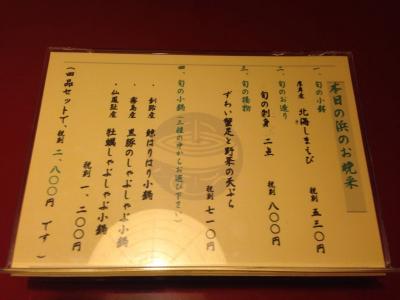 本日の浜のお晩菜
一、旬の小鉢
北海しまえび
税別 五三〇円
二、旬のお造り
旬の刺身 二点
税別 八〇〇円
三、旬の揚物
ずわい蟹足と野菜の天ぷら
税別 七一〇円
四、旬の小鍋（三種の中からお選び下さい）
・釧路産 鯨はりはり小鍋
・霧島産 黒豚のしゃぶしゃぶ小鍋
・仙鳳趾産 牡蠣しゃぶしゃぶ小鍋
税別 一、二〇〇円
（四品セットで、税別 二、八〇〇円 です）